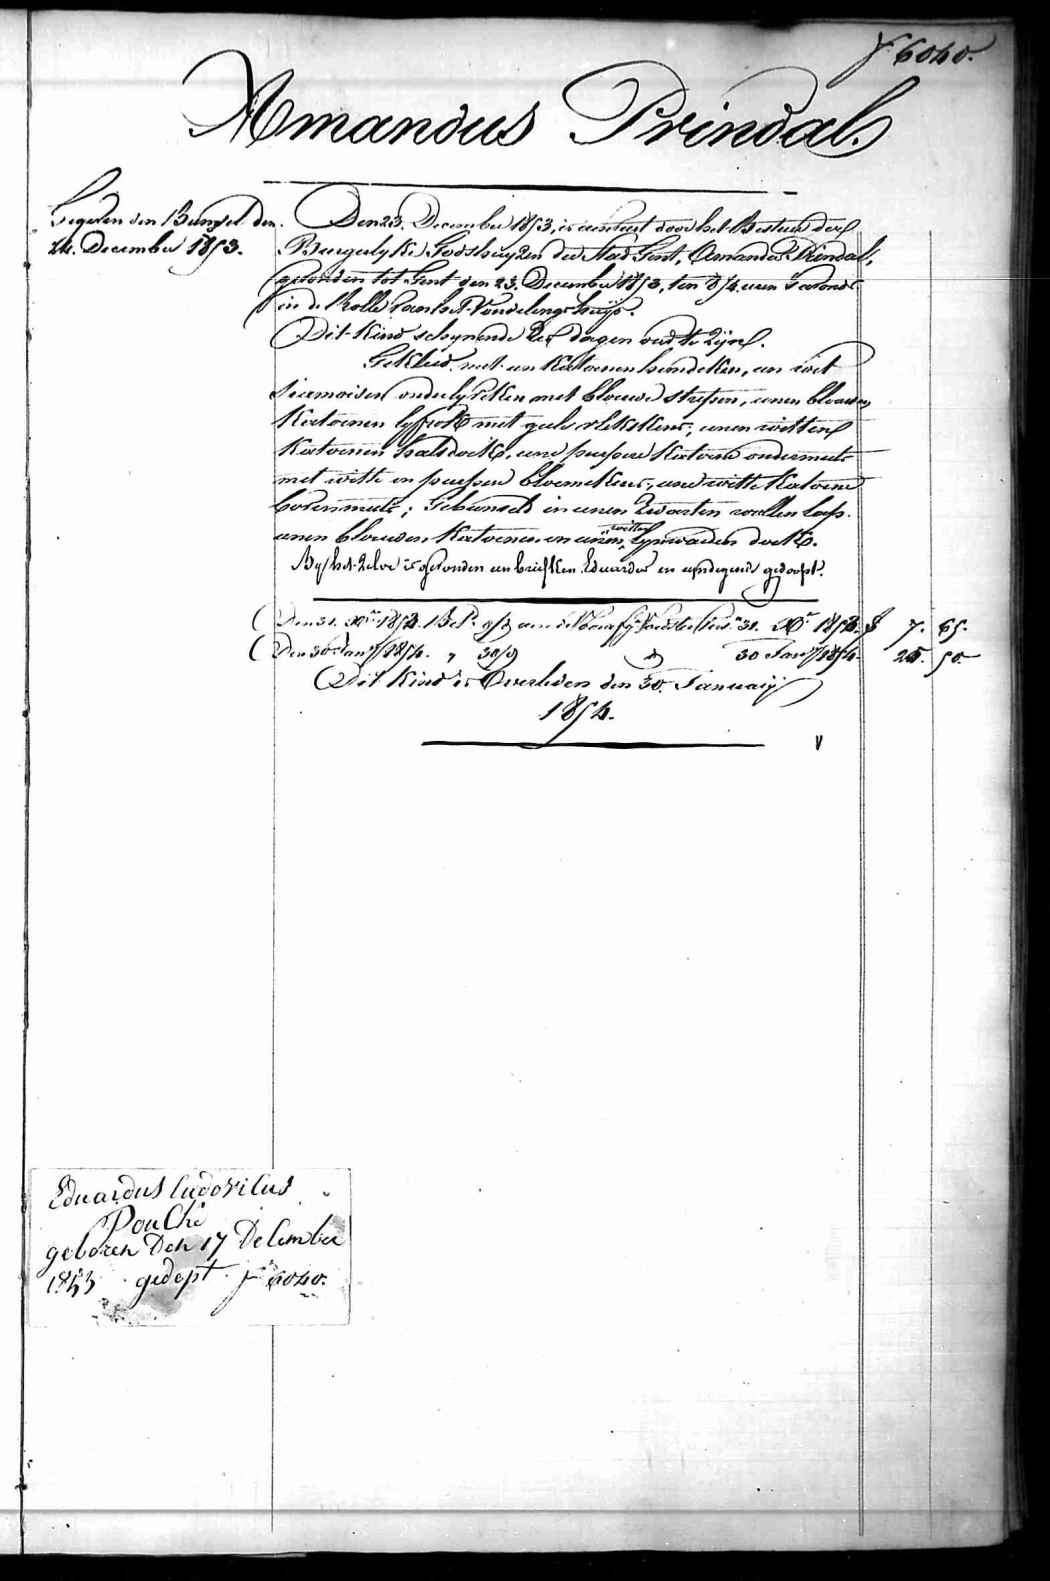 f° 6040.
Amandus Prindal.
Gegeven den Bungel den
24. December 1853.
Den 23. December 1853, is aenveert door het Bestuer der
Burgerlyke Godshuyzen der Stad Gent, Amandus Prindal,
gevonden tot Gent den 23. December 1853, ten 8 1/4 uren 's avonds
in de Rolle van het Vondelingshuys.
Dit Kind schynende zes dagen oud te Zyn.
Gekleed met een Katoenen hemdeken, een wit
siamoisen onderlyfveken met blauwe strepen, eenen blauwen
Katoenen lyfrok met geele vlekskens, eenen witten
Katoenen halsdoek, eene purpere Katoene ondermuts
met witte en purpere bloemekens, eene witte Katoene
bovenmuts; Gebunseld in eenen Zwarten wollen lap.
eenen blauwen Katoenen en eenen witten lynwaeden doek.
By het Zelve is gevonden een briefken Eduardus en eyndigende gedoopt.
Den 31. Xber 1853. 31. Xber 1853. f 7. 65.
Den 30 Jany 1854. " 30 Jany 1854. 25. 50.
Dit Kind is Overleden den 30. January
1854.
Eduardus ludovicus
Pouche
geboren Den 17 December
1853 gedept f° 6040.